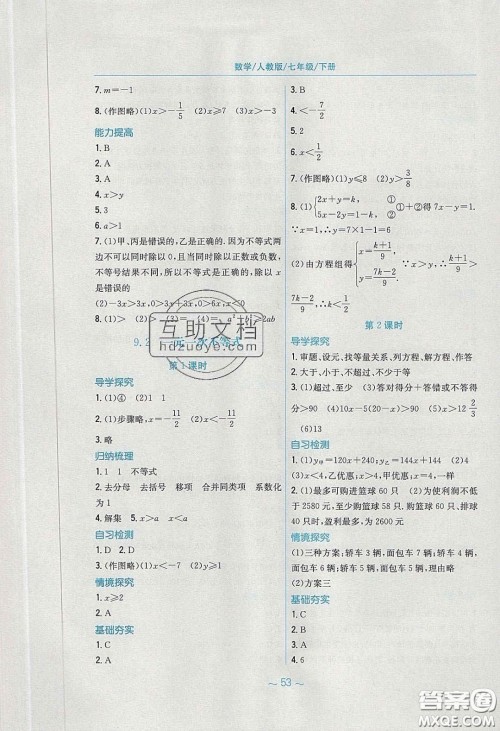 数学/人教版/七年级/下册
7. m=-1
8. (作图略)(1)x>-1/5 (2)x≥7 (3)x>-3
能力提高
1. B
2. A
3. A
4. x>y
5. 3
6. a>1
7. (1)甲、丙是错误的,乙是正确的.因为不等式两
边不可以同时除以0,且当同时除以正数或负数,
不等号结果不同,所以不等式是正确的,丙
是错误的
(2)-3x>3x,0>3x+3x,0>6x,x<0
8. (1)> (2)= (3)> (4) a²+b²≥2ab
9.2 一元一次不等式
第1课时
导学探究
1. (1)④ (2)1
2. (1)步骤略,x=-11/2 (2)x<-11/2
3. 略
归纳梳理
1. 1 1 不等式
2. 去分母 去括号 移项 合并同类项 系数化
为1
4. 解集 5. x>a x<a
自习检测
1. D 2. D
3. (作图略)(1)x<-7 (2)x>1
情境探究
1. x≥2
2. A
基础夯实
1. C
2. A
3. B
4. <-7/2
5. 2
6. x<1/2
7. (作图略)(1)y≤8 (2)y>3/8
8. (1){x+2y=k,① 5x-2y=1,② ①+②得7x-y=1.
∵x=1,∴y=7×1-1=6
(2)由方程组得{x=(k+1)/9 y=(7k-2)/9 ∵x>y,∴(k+1)/9>
(7k-2)/9,∴k<1/2
第2课时
导学探究
1. 审题、设元、找等量关系、列方程、解方程、作答
2. 大于、小于、超过、不足、不大于、不少于等
3. (1)超过、至少 (3)答对得分+答错或不答得
分>90 (4)10x-5(20-x)>90 (5)x>12 2/3
(6)13
自习检测
1. (1)y甲=120x+240;y乙=144x+144 (2)4
(3)x<4,乙优惠;x=4,甲乙一样;x>4,甲优惠
2. (1)最多可购进篮球60只 (2)为使利润不低于
2580元,至少要购篮球58只.购篮球60只,排球
40只时,盈利最多,为2600元
情境探究
(1)三种方案:轿车3辆,面包车7辆;轿车4辆,
面包车6辆;轿车5辆,面包车5辆,理由略
(2)方案三
基础夯实
1. C
2. B
3. A
4. 6
~ 53 ~
互助文档
hdzuoye.com
答案圈
MXQE.COM